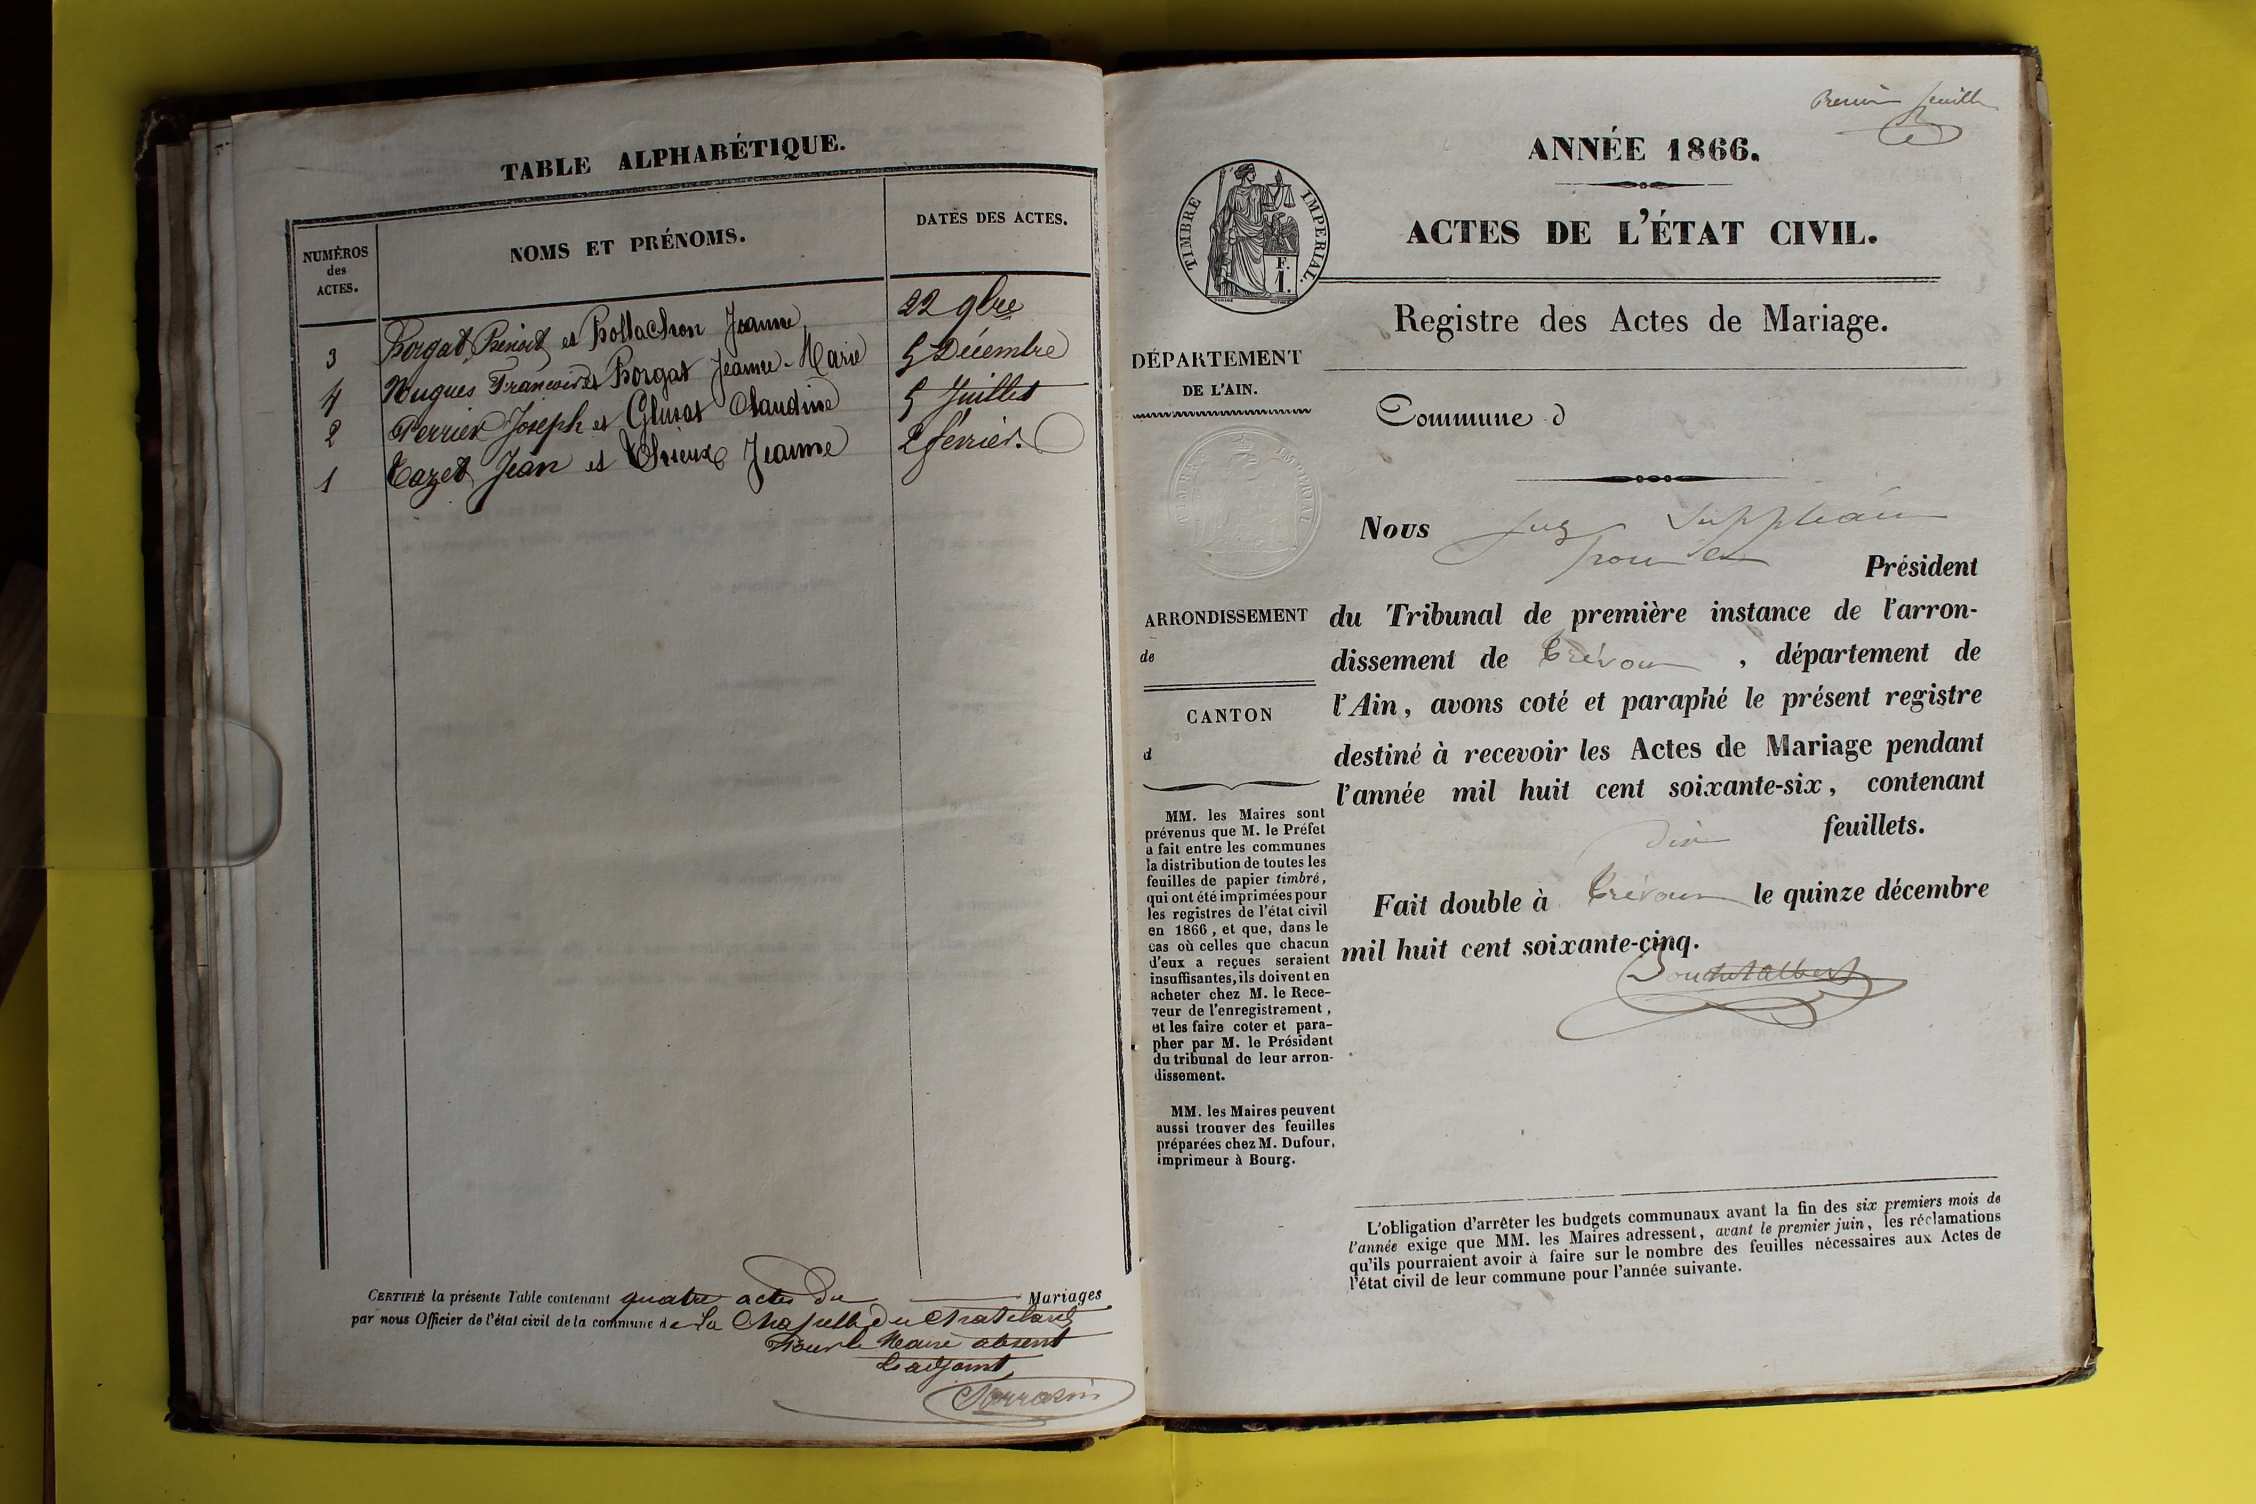 TABLE ALPHABÉTIQUE.
NUMÉROS
des
ACTES.
NOMS ET PRÉNOMS.
DATES DES ACTES.
3 Borgat Benoit et Bollachon Jeanne 22 9bre
4 Nugues François et Borgat Jeanne-Marie 5 Décembre
2 Perrier Joseph et Claudine 5 Juillet
1 Tazet Jean et Jeanne 2 février.
CERTIFIÉ la présente Table contenant quatre actes du Mariages
par nous Officier de l'état civil de la commune de La Chapelle du Chatelard
Pour le Maire absent
L'adjoint
Sarrazin
Premier feuillet
ANNÉE 1866.
ACTES DE L'ÉTAT CIVIL.
TIMBRE IMPERIAL.
F.
1.
Registre des Actes de Mariage.
DÉPARTEMENT
DE L'AIN.
Commune d
TIMBRE IMPERIAL
Nous Juge Suppléant
pour le
Président
ARRONDISSEMENT
de
CANTON
d
du Tribunal de première instance de l'arron-
dissement de Trévoux, département de
l'Ain, avons coté et paraphé le présent registre
destiné à recevoir les Actes de Mariage pendant
l'année mil huit cent soixante-six, contenant
dix feuillets.
Fait double à Trévoux le quinze décembre
mil huit cent soixante-cinq.
MM. les Maires sont
prévenus que M. le Préfet
a fait entre les communes
la distribution de toutes les
feuilles de papier timbré,
qui ont été imprimées pour
les registres de l'état civil
en 1866, et que, dans le
cas où celles que chacun
d'eux a reçues seraient
insuffisantes, ils doivent en
acheter chez M. le Rece-
veur de l'enregistrement,
et les faire coter et para-
pher par M. le Président
du tribunal de leur arron-
dissement.
MM. les Maires peuvent
aussi trouver des feuilles
préparées chez M. Dufour,
imprimeur à Bourg.
L'obligation d'arrêter les budgets communaux avant la fin des six premiers mois de
l'année exige que MM. les Maires adressent, avant le premier juin, les réclamations
qu'ils pourraient avoir à faire sur le nombre des feuilles nécessaires aux Actes de
l'état civil de leur commune pour l'année suivante.